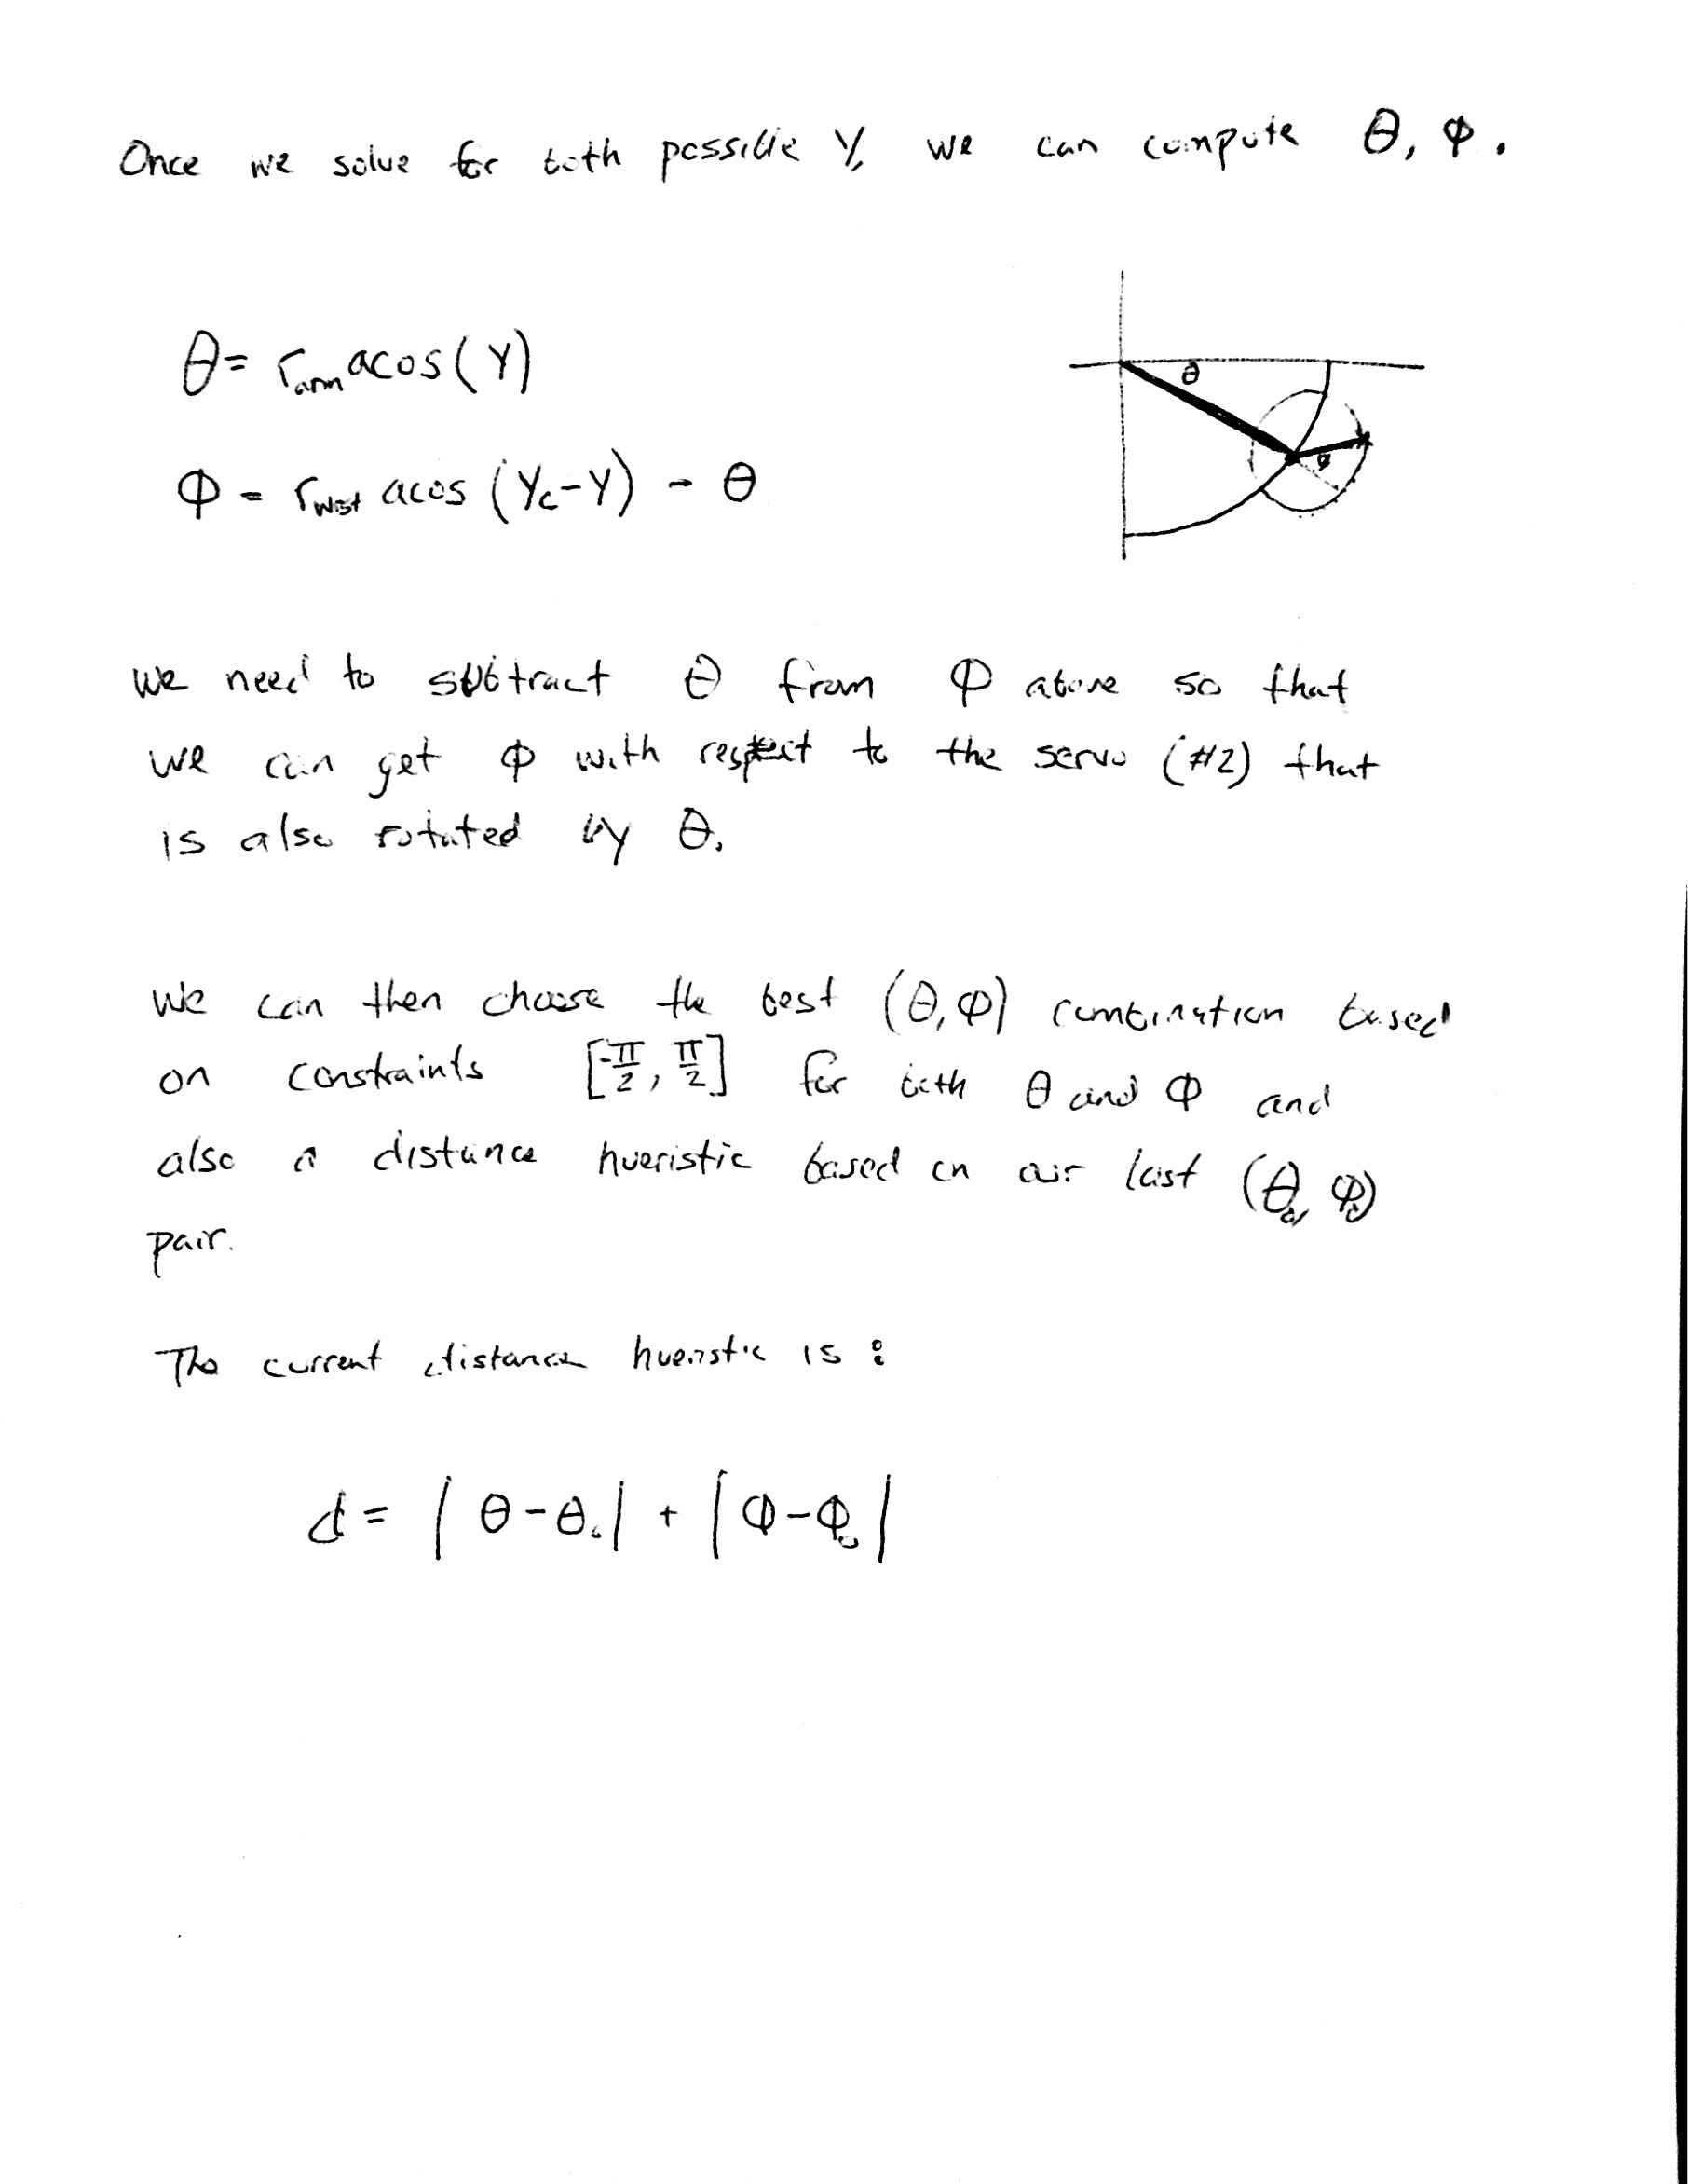 Once we solve for both possible Y, we can compute θ, Φ.
θ = r_arm acos(Y)
θ
Φ = r_wrist acos (Y_c - Y) - θ
φ
we need to subtract θ from Φ above so that
we can get Φ with respect to the servo (#2) that
is also rotated by θ.
We can then choose the best (θ, Φ) combination based
on constraints [-π/2, π/2] for both θ and Φ and
also a distance hueristic based on our last (θ₀, Φ₀)
pair.
The current distance hueristic is:
d = |θ - θ₀| + |Φ - Φ₀|